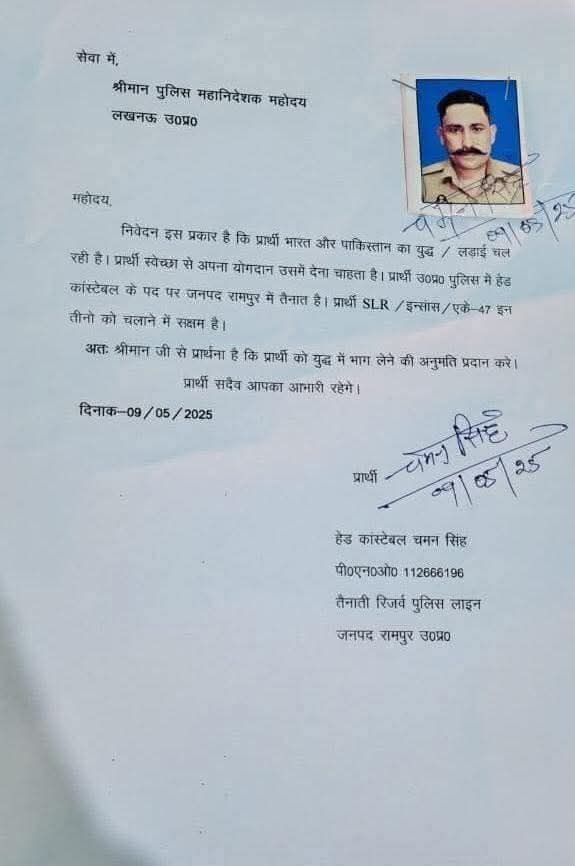 सेवा में,
श्रीमान पुलिस महानिदेशक महोदय
लखनऊ उ0प्र0
चमन सिंह
09/05/25
महोदय,
निवेदन इस प्रकार है कि प्रार्थी भारत और पाकिस्तान का युद्ध / लड़ाई चल
रही है। प्रार्थी स्वेच्छा से अपना योगदान उसमें देना चाहता है। प्रार्थी उ0प्र0 पुलिस में हेड
कांस्टेबल के पद पर जनपद रामपुर में तैनात है। प्रार्थी SLR /इन्सास/एके-47 इन
तीनो को चलाने में सक्षम है।
अतः श्रीमान जी से प्रार्थना है कि प्रार्थी को युद्ध में भाग लेने की अनुमति प्रदान करे।
प्रार्थी सदैव आपका आभारी रहेगे।
दिनाक-09/05/2025
प्रार्थी चमन सिंह
09/05/25
हेड कांस्टेबल चमन सिंह
पी0एन0ओ0 112666196
तैनाती रिजर्व पुलिस लाइन
जनपद रामपुर उ0प्र0